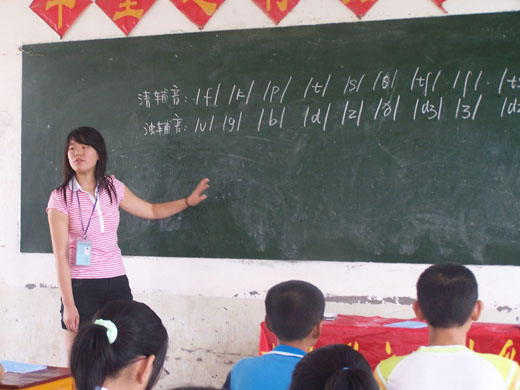 清辅音: /f/ /k/ /p/ /t/ /s/ /θ/ /tʃ/ /ʃ/
浊辅音: /v/ /g/ /b/ /d/ /z/ /ð/ /dʒ/ /ʒ/